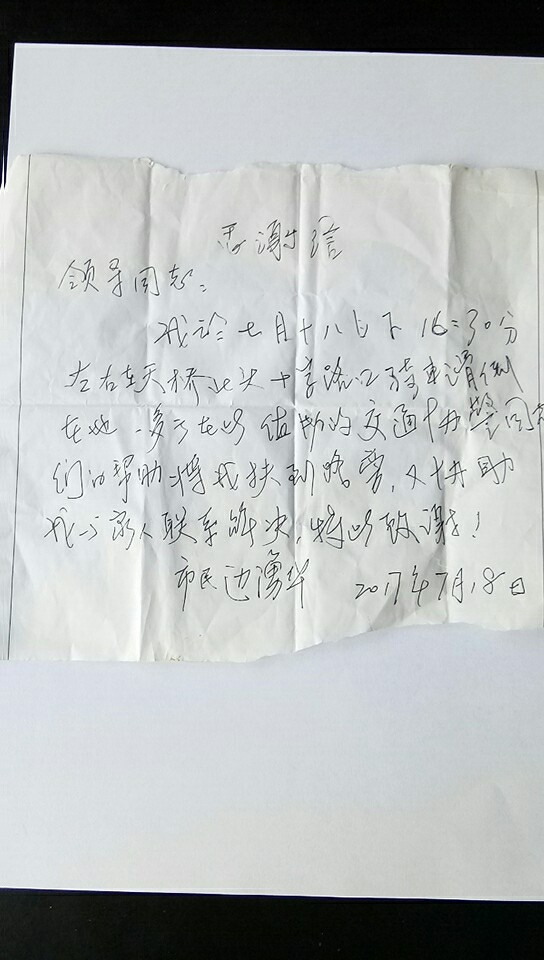 感谢信
领导同志：
我於七月十八日下16:30分
左右在天桥北头十字路口骑车滑倒
在地。多亏在此值班的交通协警同志
们的帮助将我扶到路旁，又协助
我与家人联系解决，特此致谢！
市民边湧华 2017年7月18日